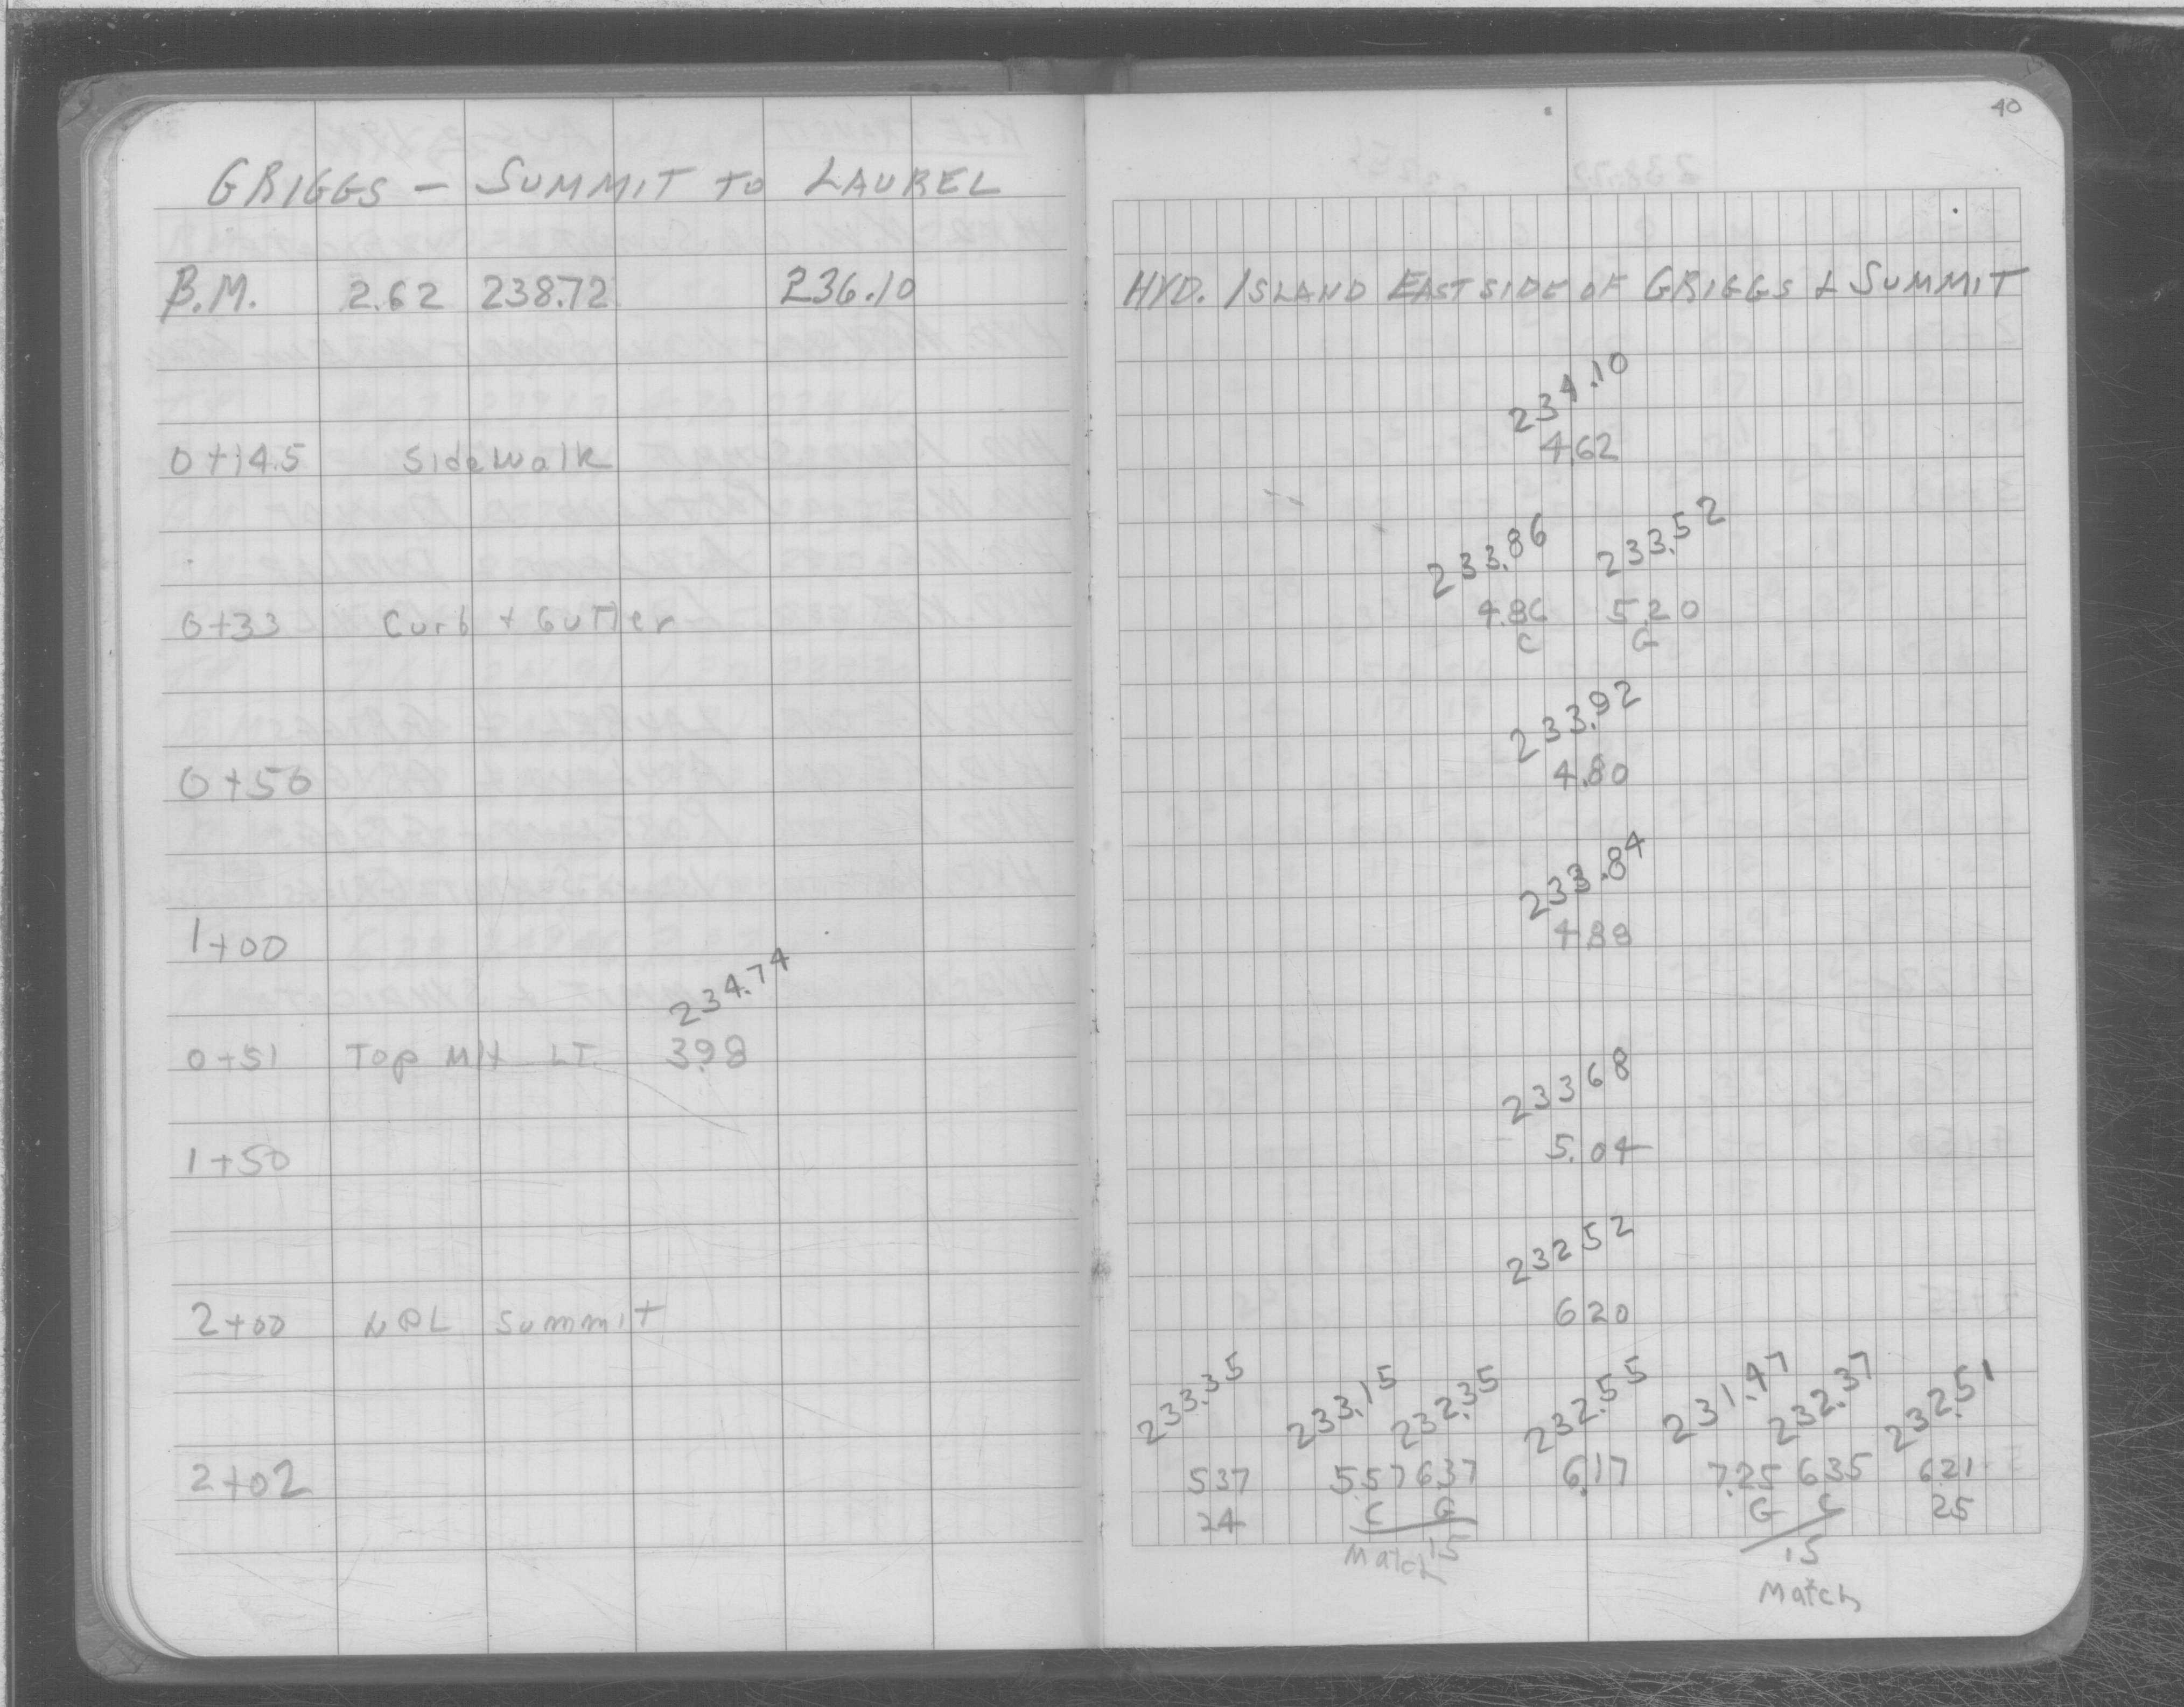 40
GRIGGS - SUMMIT TO LAUREL
B.M. 2.62 238.72 236.10 HYD. ISLAND EAST SIDE OF GRIGGS & SUMMIT
234.10
0+14.5 Sidewalk 4.62
233.86 233.52
0+33 Curb + Gutter 4.86 5.20
C G
233.92
0+50 4.80
233.84
1+00 4.88
234.74
0+51 Top MH LT 3.98
233 68
1+50 5.04
232 52
2+00 NPL Summit 6 20
233.35 233.15 232.35 232.55 231.47 232.37 232.51
2+02 5 37 5.57 6 37 6.17 7.25 6 35 6 21
24 C G G C 25
15 15
Match Match